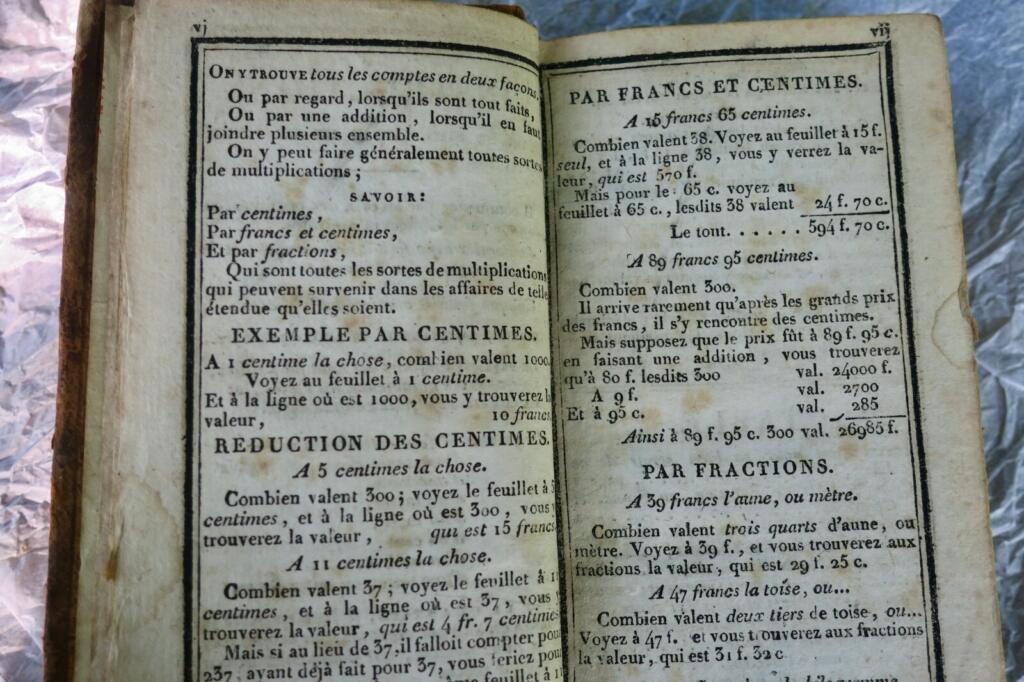 vj
ON Y TROUVE tous les comptes en deux façons.
Ou par regard, lorsqu'ils sont tout faits,
Ou par une addition, lorsqu'il en faut
joindre plusieurs ensemble.
On y peut faire généralement toutes sortes
de multiplications ;
SAVOIR :
Par centimes,
Par francs et centimes,
Et par fractions,
Qui sont toutes les sortes de multiplications
qui peuvent survenir dans les affaires de telle
étendue qu'elles soient.
EXEMPLE PAR CENTIMES.
A 1 centime la chose, combien valent 1000.
Voyez au feuillet à 1 centime.
Et à la ligne où est 1000, vous y trouverez la
valeur, 10 francs.
REDUCTION DES CENTIMES.
A 5 centimes la chose.
Combien valent 300 ; voyez le feuillet à 5
centimes, et à la ligne où est 300, vous y
trouverez la valeur, qui est 15 francs.
A 11 centimes la chose.
Combien valent 37 ; voyez le feuillet à 11
centimes, et à la ligne où est 37, vous y
trouverez la valeur, qui est 4 fr. 7 centimes.
Mais si au lieu de 37, il falloit compter pour
237, ayant déjà fait pour 37, vous
feuillet à
vij
PAR FRANCS ET CENTIMES.
A 15 francs 65 centimes.
Combien valent 38. Voyez au feuillet à 15 f.
seul, et à la ligne 38, vous y verrez la va-
leur, qui est 570 f.
Mais pour le 65 c. voyez au
feuillet à 65 c., lesdits 38 valent 24 f. 70 c.
Le tout. . . . . . 594 f. 70 c.
A 89 francs 95 centimes.
Combien valent 300.
Il arrive rarement qu'après les grands prix
des francs, il s'y rencontre des centimes.
Mais supposez que le prix fût à 89 f. 95 c.
en faisant une addition, vous trouverez
qu'à 80 f. lesdits 300 val. 24000 f.
A 9 f. val. 2700
Et à 95 c. val. 285
Ainsi à 89 f. 95 c. 300 val. 26985 f.
PAR FRACTIONS.
A 39 francs l'aune, ou mètre.
Combien valent trois quarts d'aune, ou
mètre. Voyez à 39 f., et vous trouverez aux
fractions la valeur, qui est 29 f. 25 c.
A 47 francs la toise, ou...
Combien valent deux tiers de toise, ou...
Voyez à 47 f. et vous trouverez aux fractions
la valeur, qui est 31 f. 32 c